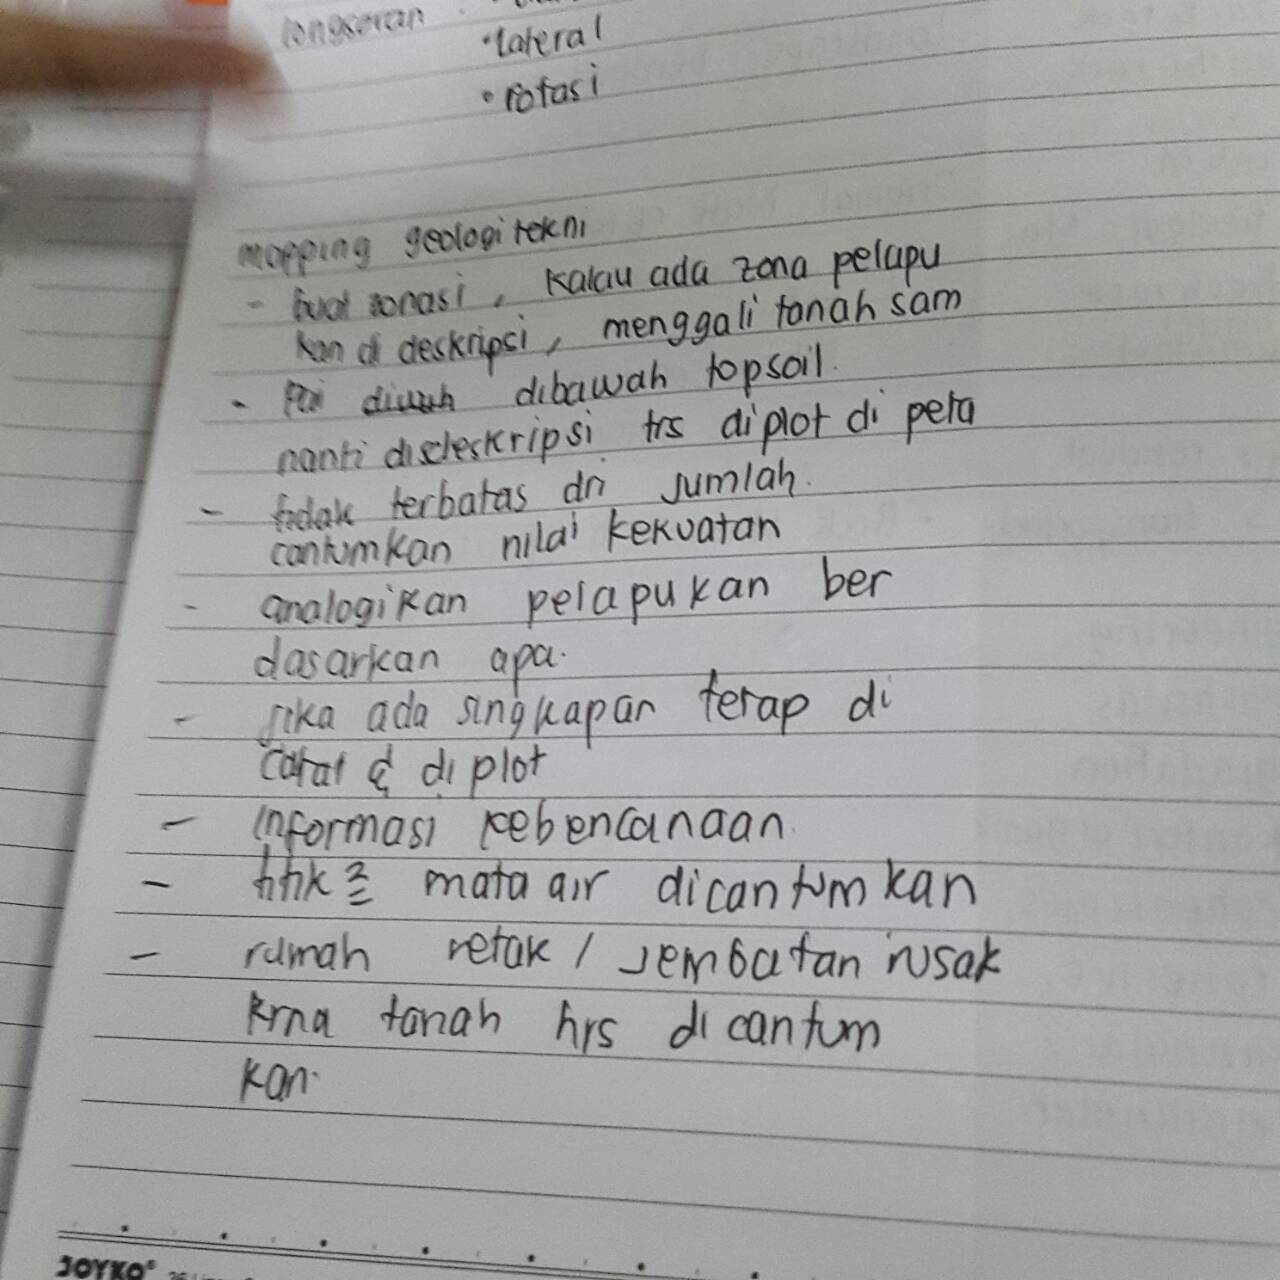 longsoran
• lateral
• rotasi
mapping geologi tekni
- buat zonasi, kalau ada zona pelapu
kan di deskripsi, menggali tanah sam
- pai dibawah topsoil.
nanti dideskripsi trs diplot di peta
- tidak terbatas dri jumlah.
cantumkan nilai kekuatan
- analogikan pelapukan ber
dasarkan apa.
- jika ada singkapan tetap di
catat & di plot
- informasi kebencanaan.
- titik2 mata air dicantumkan
- rumah retak / jembatan rusak
krna tanah hrs dicantum
kan.
JOYKO